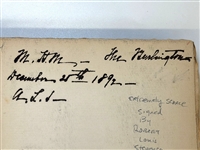 M. H. M. - The Burlington
December 25th 1892
A. L. S -
EXTREMELY SCARCE
Signed
By
ROBERT
LOUIS
STEVENSON